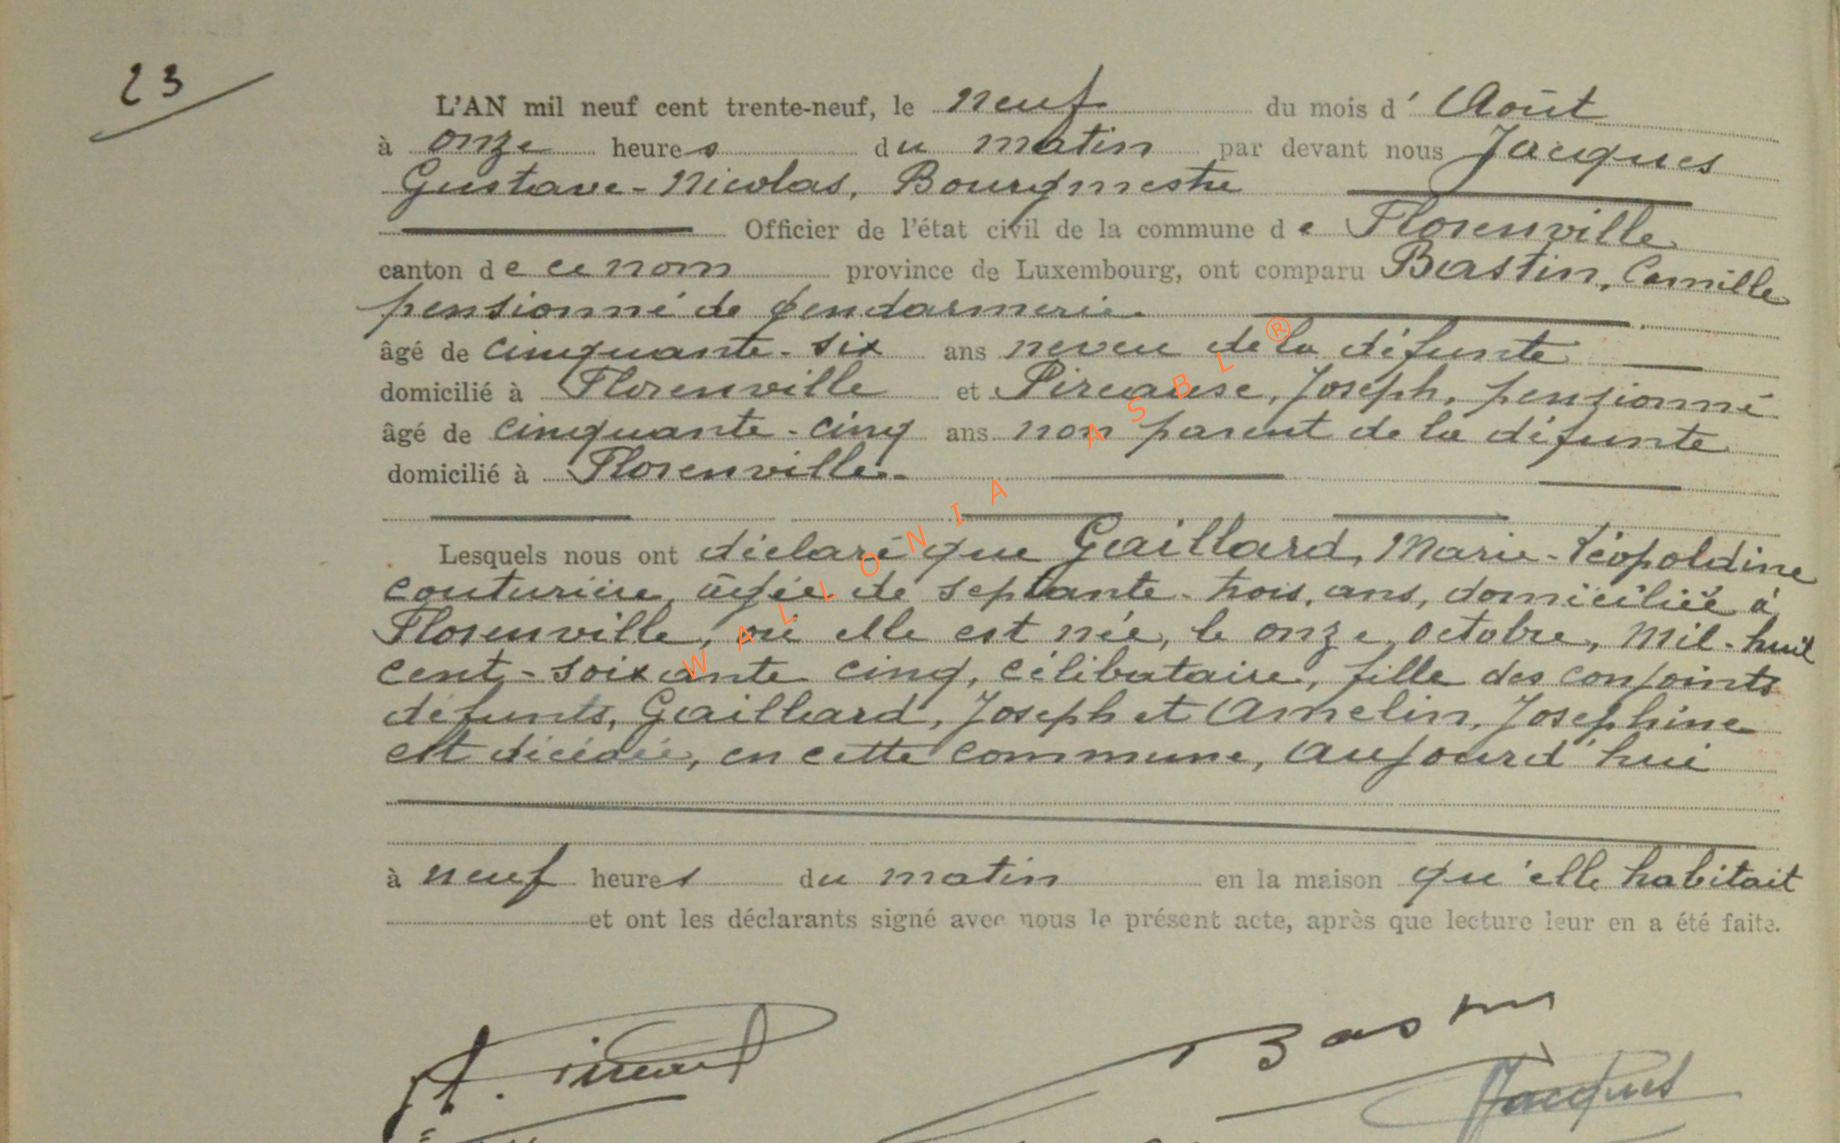 23
L'AN mil neuf cent trente-neuf, le neuf du mois d' Août
à onze heures du matin par devant nous Jacques
Gustave-Nicolas, Bourgmestre
Officier de l'état civil de la commune de Florenville
canton de ce nom province de Luxembourg, ont comparu Bastin, Camille
pensionné de gendarmerie
âgé de cinquante-six ans neveu de la défunte
domicilié à Florenville et Pircause, Joseph, pensionné
âgé de cinquante-cinq ans non parent de la défunte
domicilié à Florenville.
Lesquels nous ont déclaré que Gaillard, Marie-Léopoldine
couturière, âgée de septante-trois, ans, domiciliée à
Florenville, où elle est née, le onze, octobre, mil-huit
cent-soixante cinq, célibataire, fille des conjoints
défunts, Gaillard, Joseph et Amelin, Josephine
est décédée, en cette commune, aujourd'hui
à neuf heures du matin en la maison qu'elle habitait
et ont les déclarants signé avec nous le présent acte, après que lecture leur en a été faite.
Bastin
Jacques
WALLONIA ASBL ®